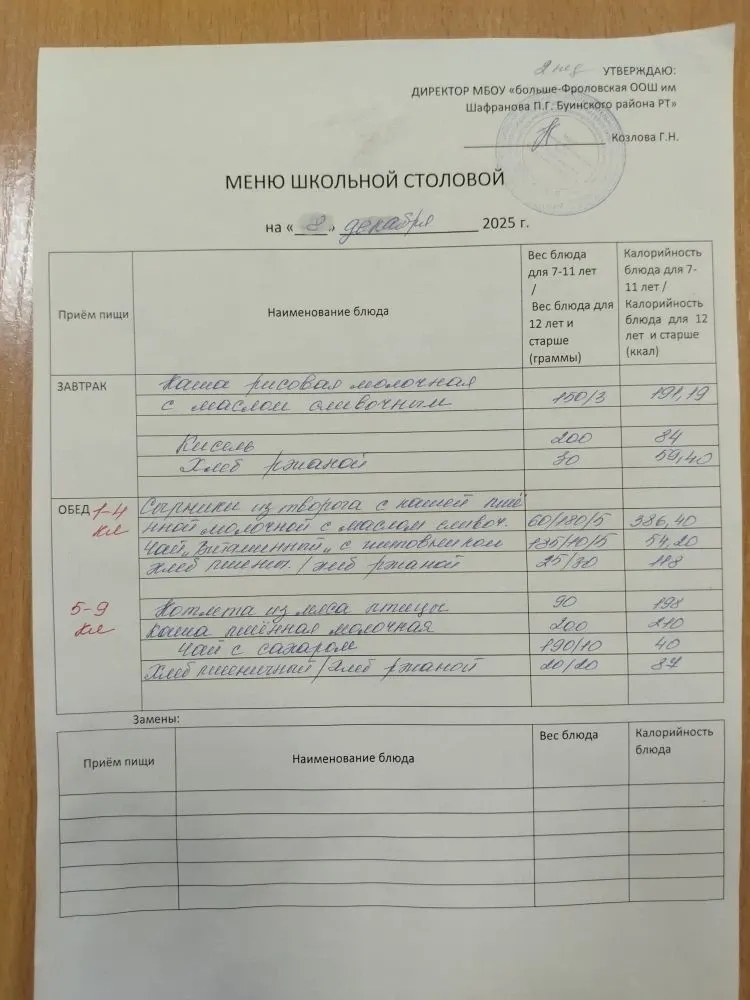 2 нед УТВЕРЖДАЮ:
ДИРЕКТОР МБОУ «больше-Фроловская ООШ им
Шафранова П.Г. Буинского района РТ»
Козлова Г.Н.
МЕНЮ ШКОЛЬНОЙ СТОЛОВОЙ
на « 8 » декабря 2025 г.
Приём пищи
Наименование блюда
Вес блюда
для 7-11 лет
/
Вес блюда для
12 лет и
старше
(граммы)
Калорийность
блюда для 7-
11 лет /
Калорийность
блюда для 12
лет и старше
(ккал)
ЗАВТРАК Каша рисовая молочная
с маслом сливочным 150/3 191,19
Кисель 200 84
Хлеб ржаной 30 59,40
ОБЕД 1-4 Сырники из творога с кашей пшё
кл нной молочной с маслом сливоч. 60/180/5 386,40
Чай „Витаминный„ с шиповником 185/10/5 54,20
Хлеб пшенич./хлеб ржаной 25/30 118
5-9 Котлета из мяса птицы 90 198
кл Каша пшённая молочная 200 210
Чай с сахаром 190/10 40
Хлеб пшеничный/Хлеб ржаной 20/20 87
Замены:
Приём пищи
Наименование блюда
Вес блюда
Калорийность
блюда